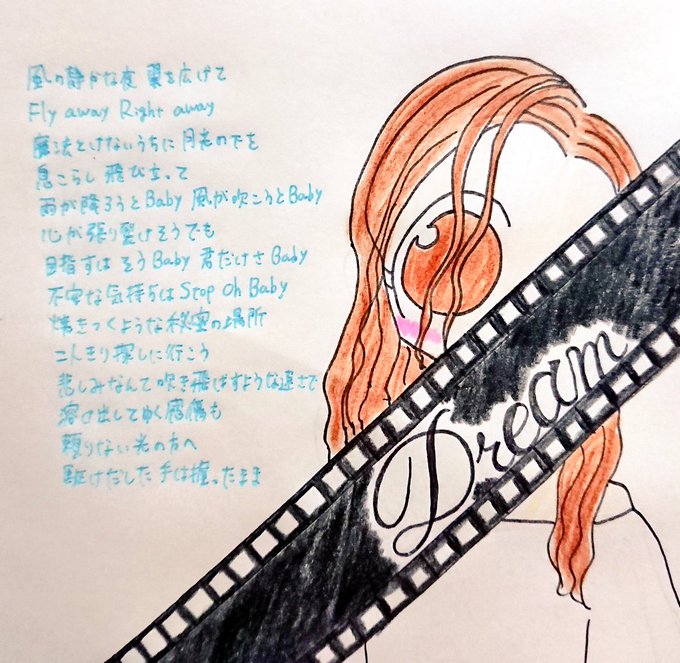 風の静かな夜 翼を広げて
Fly away Right away
魔法とけないうちに 月光の下を
息こらし 飛び立って
雨が降ろうと Baby 風が吹こうと Baby
心が張り裂けそうでも
目指すは そう Baby 君だけさ Baby
不安な気持ちは Stop Oh Baby
焼きつくような秘密の場所
二人きり探しに行こう
悲しみなんて 吹き飛ばすような速さで
溶け出してゆく 感傷も
頼りない光の方へ
駆けだした 手は握ったまま
Dream